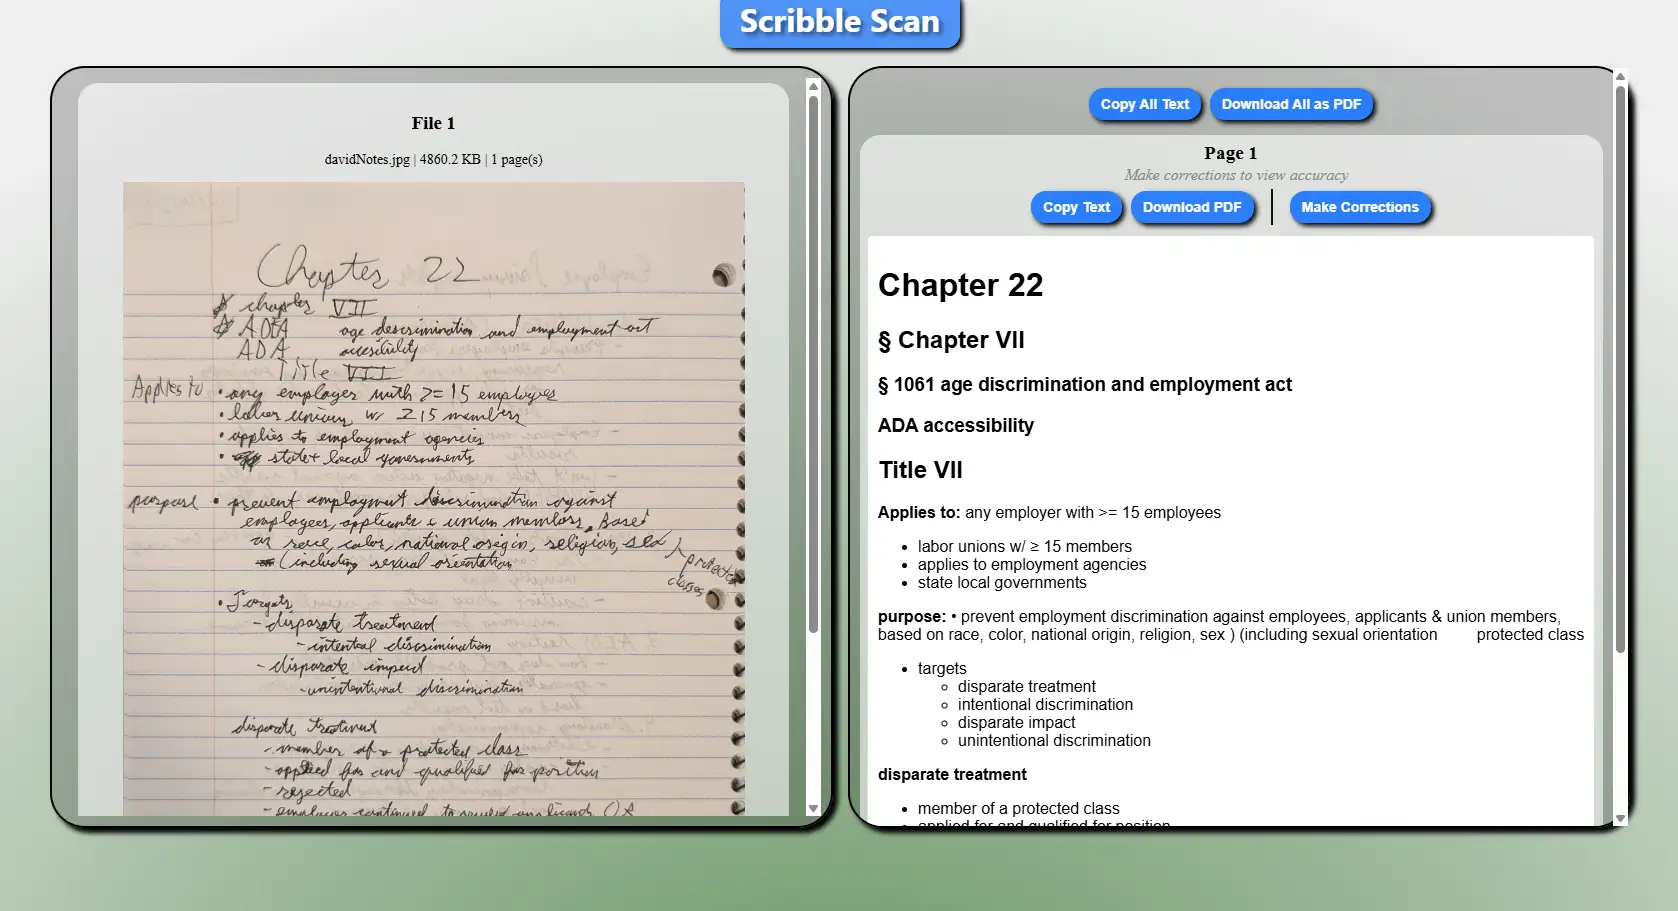 Scribble Scan
File 1
davidNotes.jpg | 4860.2 KB | 1 page(s)
Chapter 22
chapter VII
ADEA age descrimination and employment act
ADA accesibility
Title VII
Applies to • any employer with >= 15 employees
• labor unions w/ ≥ 15 members
• applies to employment agencies
• state + local governments
purpose • prevent employment discrimination against
employees, applicants & union members. Based
on race, color, national origin, religion, sex
(including sexual orientation
protected
classes
• Targets
- disparate treatment
- intentional discrimination
- disparate
- unintentional discrimination
disparate treatment
- member of a protected class
- applied for and qualified for position
- rejected
- employer continued to
Copy All Text
Download All as PDF
Page 1
Make corrections to view accuracy
Copy Text
Download PDF
Make Corrections
Chapter 22
§ Chapter VII
§ 1061 age discrimination and employment act
ADA accessibility
Title VII
Applies to: any employer with >= 15 employees
• labor unions w/ ≥ 15 members
• applies to employment agencies
• state local governments
purpose: • prevent employment discrimination against employees, applicants & union members,
based on race, color, national origin, religion, sex ) (including sexual orientation protected class
• targets
◦ disparate treatment
◦ intentional discrimination
◦ disparate impact
◦ unintentional discrimination
disparate treatment
• member of a protected class
• applied for and qualified for position